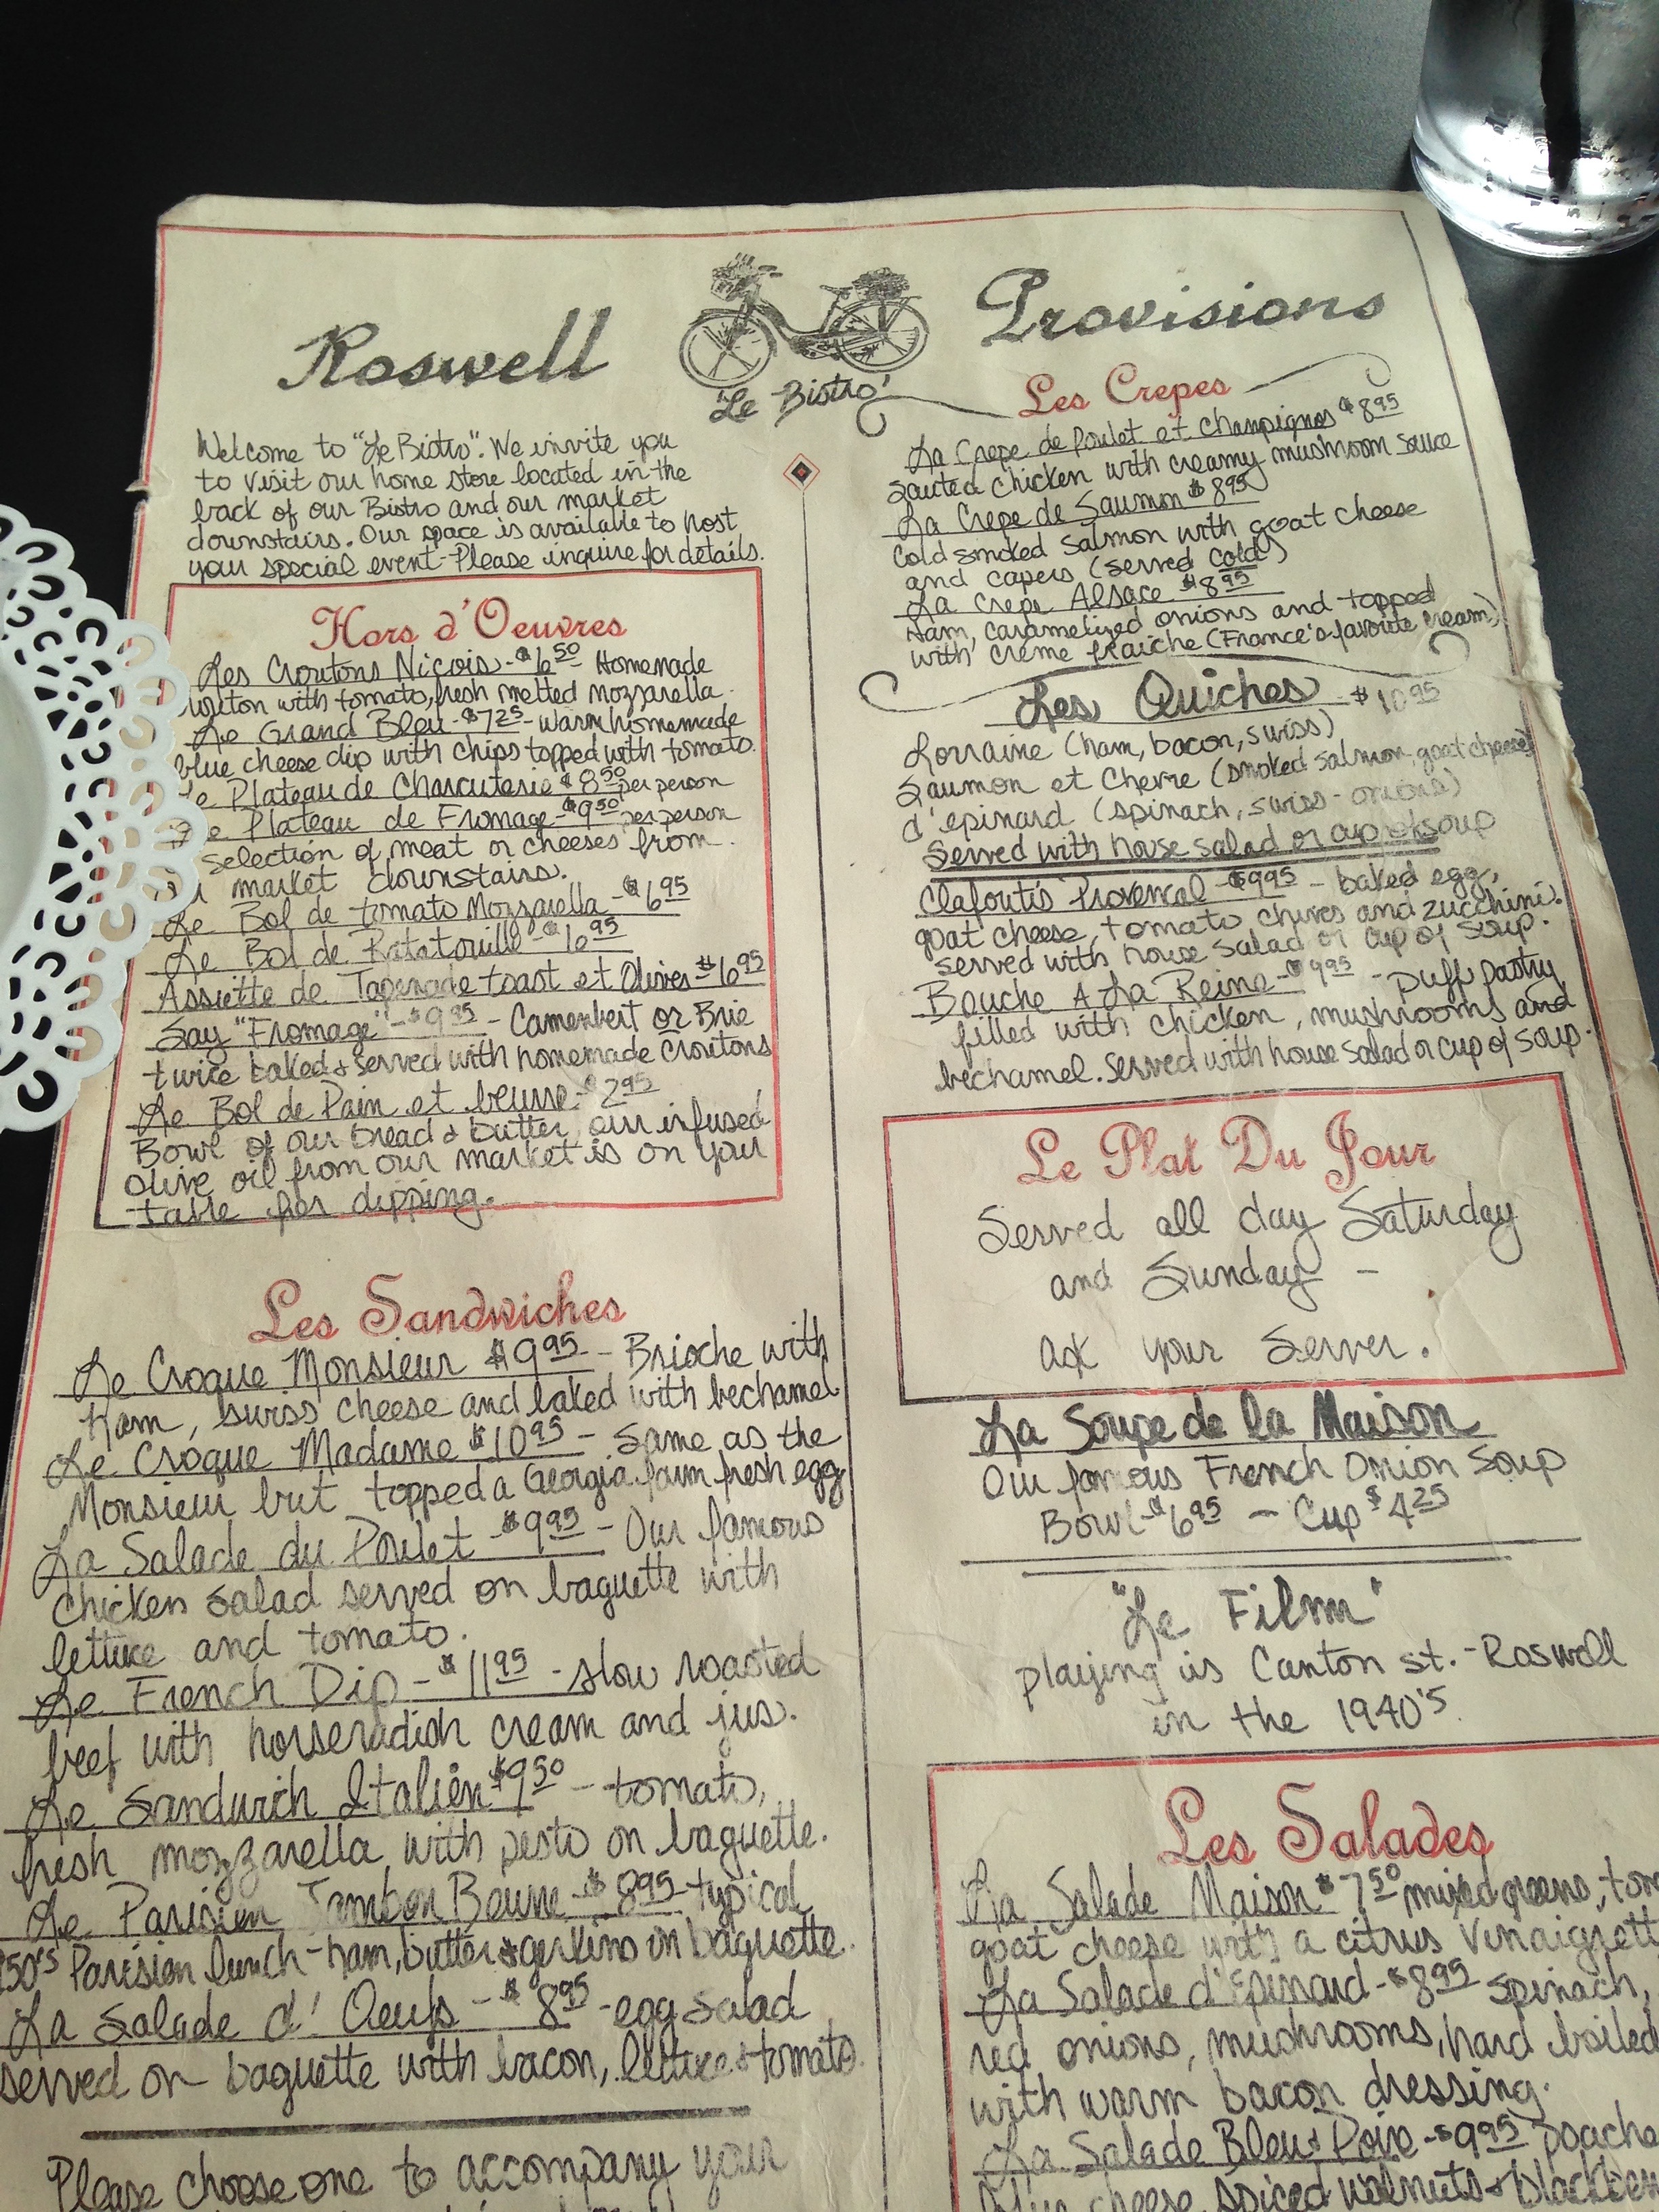 Roswell
Provisions
'Le Bistro'
Welcome to "Le Bistro". We invite you
to visit our home store located in the
back of our Bistro and our market
downstairs. Our space is available to host
your special event-Please inquire for details.
Hors d'Oeuvres
Les Croutons Niçois-$6.50- Homemade
with tomato, fresh melted mozzarella.
Le Grand Bleu-$7.25-warm homemade
blue cheese dip with chips topped with tomato.
Le Plateau de Charcuterie $8.50 per person
Le Plateau de Fromage-$9.50 per person
selection of meat or cheeses from
market downstairs.
Le Bol de tomato Mozzarella-$6.95
Le Bol de Ratatouille-$6.95
Assiette de Tapenade toast et Olives $6.95
Say "Fromage"-$9.95-Camembert or Brie
twice baked & served with homemade croutons
Le Bol de Pain et beurre-$2.95
Bowl of our bread & butter, our infused
olive oil from our market is on your
table for dipping.
Les Sandwiches
Le Croque Monsieur $9.95-Brioche with
Ham, swiss cheese and baked with bechamel
Le Croque Madame $10.95-Same as the
Monsieur but topped a Georgia farm fresh egg
La Salade du Poulet-$9.95-Our famous
chicken salad served on baguette with
lettuce and tomato.
Le French Dip-$11.95-slow roasted
beef with horseradish cream and jus.
Le Sandwich Italien $9.50-tomato,
fresh mozzarella with pesto on baguette.
Le Parisien Jambon Beurre-$8.95-typical
50's Parisien lunch-ham, butter & gerkins on baguette.
La Salade d' Oeufs-$8.95-egg salad
served on baguette with bacon, lettuce & tomato.
Please choose one to accompany your
Les Crepes
La Crepe de Poulet et Champignos $8.95
Sauted chicken with creamy mushroom sauce
La Crepe de Saumon $8.95
Cold smoked salmon with goat cheese
and capers (served cold)
La Crepe Alsace $8.95
Ham, caramelized onions and topped
with crème fraiche (France's favorite cream)
Les Quiches $10.95
Lorraine (ham, bacon, swiss)
Saumon et Chevre (smoked salmon, goat cheese)
d'epinard (spinach, swiss-onions)
Served with house salad or cup of soup
Clafoutis Provencal-$9.95-baked egg,
goat cheese, tomato chives and zucchini.
served with house salad or cup of soup.
Bouche A La Reine-$9.95-puff pastry
filled with chicken, mushrooms and
bechamel. Served with house salad or cup of soup.
Le Plat Du Jour
Served all day Saturday
and Sunday -
ask your server.
La Soupe de la Maison
Our famous French Onion Soup
Bowl-$6.95 - Cup $4.25
"Le Film"
playing is Canton st.-Roswell
in the 1940's.
Les Salades
La Salade Maison $7.50 mixed greens, tom
goat cheese with a citrus vinaigrett
La Salade d'Epinard-$8.95 spinach,
red onions, mushrooms, hard boiled
with warm bacon dressing.
La Salade Bleu & Poire-$9.95 poache
cheese, spiced walnuts & blackber